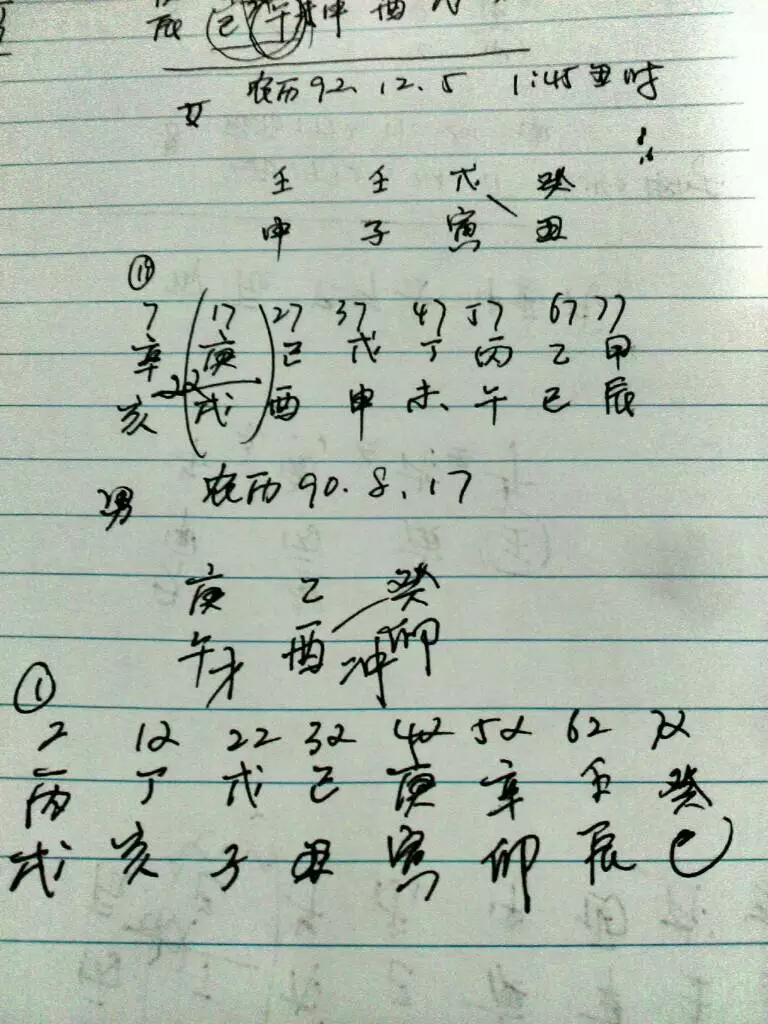 辰 巳 午 申 酉
女 农历 92.12.5 1:45 丑时
壬 壬 戊 癸
申 子 寅 丑
7 17 27 37 47 57 67 77
辛 庚 己 戊 丁 丙 乙 甲
22
亥 戌 酉 申 未 午 巳 辰
男 农历 90.8.17
庚 乙 癸
午 才 酉 冲 卯
①
2 12 22 32 42 52 62 72
丙 丁 戊 己 庚 辛 壬 癸
戌 亥 子 丑 寅 卯 辰 巳